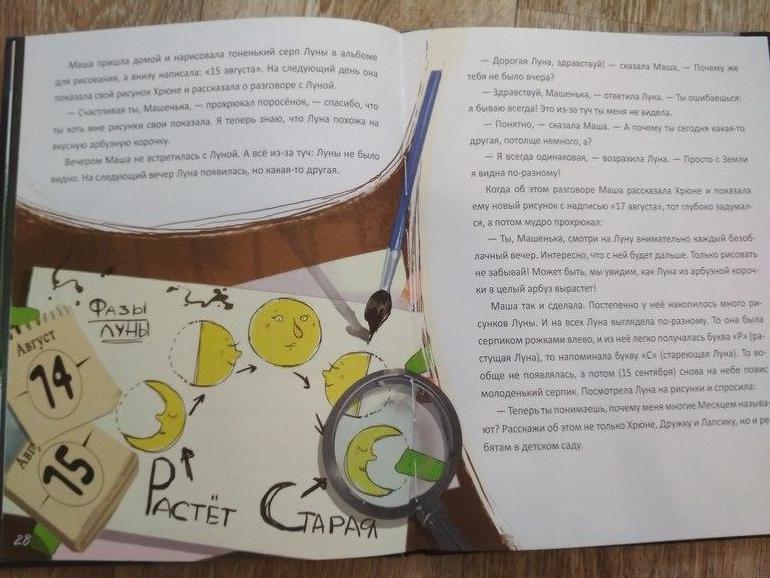 Маша пришла домой и нарисовала тоненький серп Луны в альбоме
для рисования, а внизу написала: «15 августа». На следующий день она
показала свой рисунок Хрюне и рассказала о разговоре с Луной.
— Счастливая ты, Машенька, — прохрюкал поросёнок, — спасибо, что
ты хоть мне рисунки свои показала. Я теперь знаю, что Луна похожа на
вкусную арбузную корочку.
Вечером Маша не встретилась с Луной. А всё из-за туч: Луны не было
видно. На следующий вечер Луна появилась, но какая-то другая.
Фазы
Луны
Август
14
Авг
15
Растёт
Старая
28
— Дорогая Луна, здравствуй! — сказала Маша, — Почему же
тебя не было вчера?
— Здравствуй, Машенька, — ответила Луна. — Ты ошибаешься:
я бываю всегда! Это из-за туч ты меня не видела.
— Понятно, — сказала Маша. — А почему ты сегодня какая-то
другая, потолще немного, а?
— Я всегда одинаковая, — возразила Луна. — Просто с Земли
я видна по-разному!
Когда об этом разговоре Маша рассказала Хрюне и показала
ему новый рисунок с надписью «17 августа», тот глубоко задумал-
ся, а потом мудро прохрюкал:
— Ты, Машенька, смотри на Луну внимательно каждый безоб-
лачный вечер. Интересно, что с ней будет дальше. Только рисовать
не забывай! Может быть, мы увидим, как Луна из арбузной короч-
ки в целый арбуз вырастет!
Маша так и сделала. Постепенно у неё накопилось много ри-
сунков Луны. И на всех Луна выглядела по-разному. То она была
серпиком рожками влево, и из неё легко получалась буква «Р» (ра-
стущая Луна), то напоминала букву «С» (стареющая Луна). То во-
обще не появлялась, а потом (15 сентября) снова на небе повис
молоденький серпик. Посмотрела Луна на рисунки и спросила:
— Теперь ты понимаешь, почему меня многие Месяцем называ-
ют? Расскажи об этом не только Хрюне, Дружку и Лапсику, но и ре
бятам в детском саду.